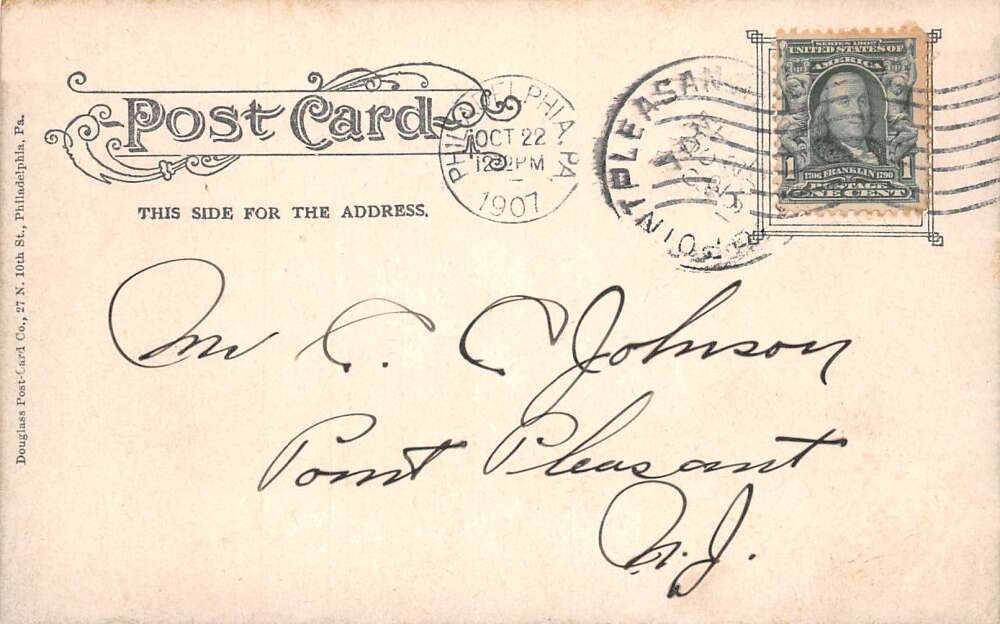 Post Card
THIS SIDE FOR THE ADDRESS.
Douglass Post-Card Co., 27 N. 10th St., Philadelphia, Pa.
PHILADELPHIA, PA
OCT 22
1907
POINT PLEASAN
SERIES 1902
UNITED STATES OF
AMERICA
1 1
1706 FRANKLIN 1790
POSTAGE
ONE CENT
Mr C. C. Johnson
Point Pleasant
N.J.